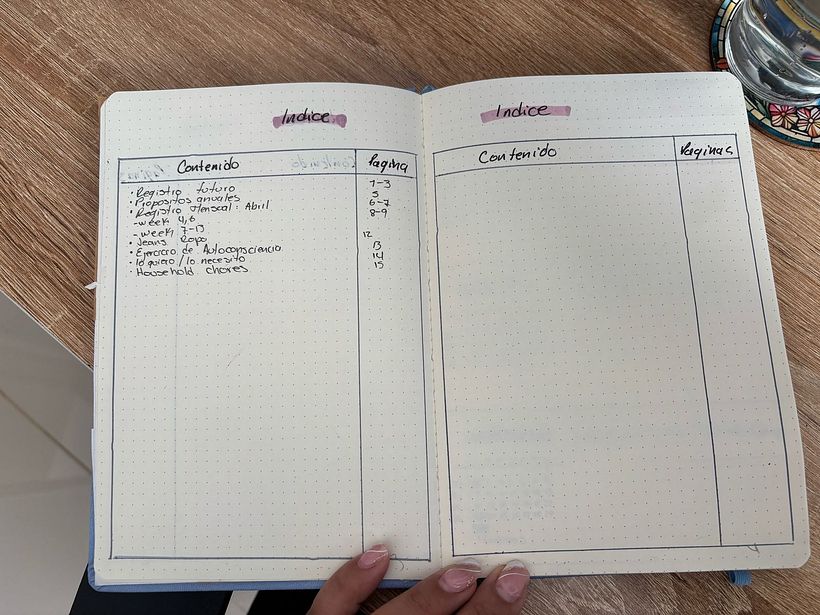 Indice
Contenido Pagina
• Registro futuro 1-3
• Propositos anuales 5
• Registro Mensual: Abril 6-7
- week 4,6 8-9
- week 7-13
• Jeans Ropa 12
• Ejercicio de Autoconsciencia 13
• lo quiero / lo necesito 14
• Household chores 15
Indice
Contenido Paginas